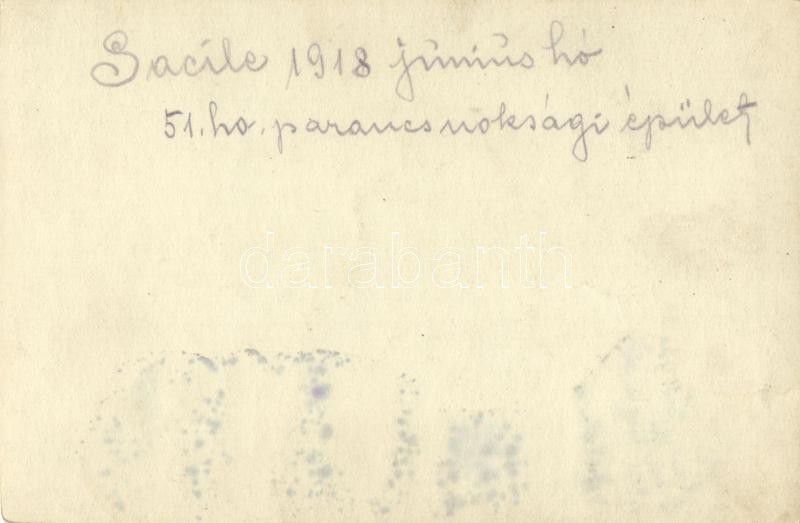 Sacile 1918 június hó
51. ho. parancsnoksági épület
darabanth